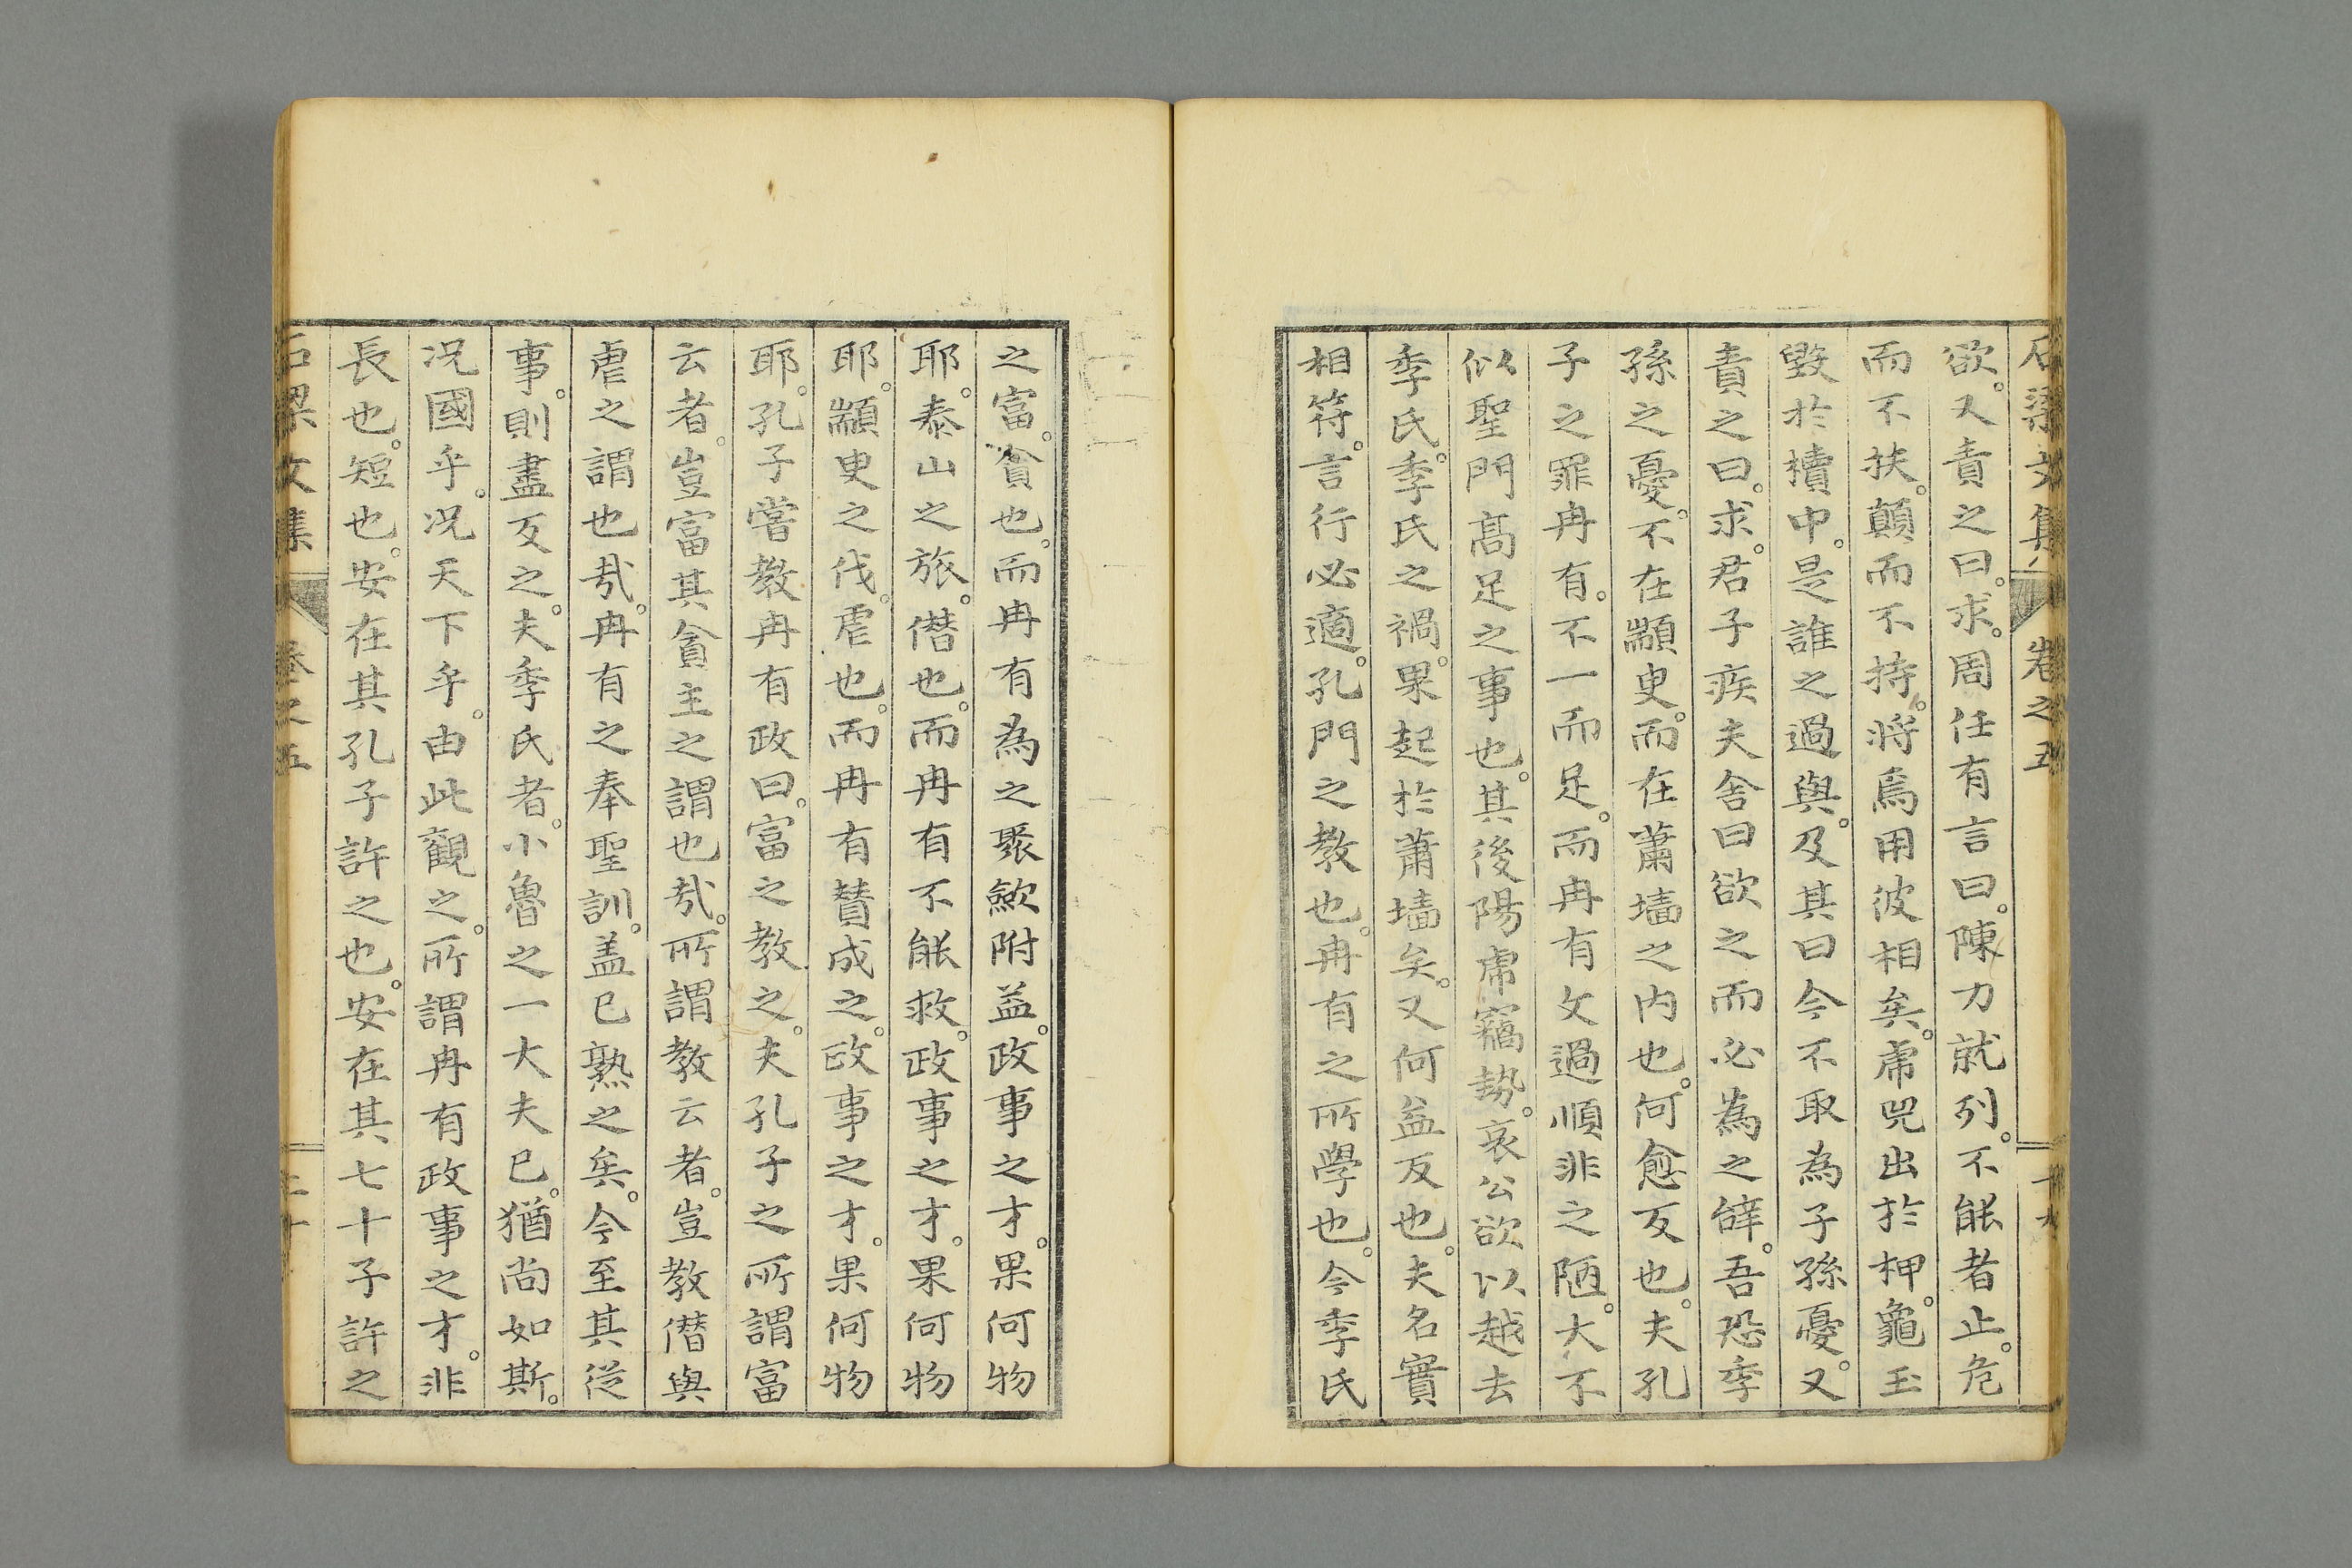 石梁文集 卷之五 十九
欲。又責之曰。求。周任有言曰。陳力就列。不能者止。危
而不扶。顛而不持。將焉用彼相矣。虎兕出於柙。龜玉
毀於櫝中。是誰之過與。及其曰今不取為子孫憂。又
責之曰。求。君子疾夫舍曰欲之而必為之辭。吾恐季
孫之憂。不在顓臾。而在蕭墻之内也。何愈反也。夫孔
子之罪冉有。不一而足。而冉有文過順非之陋。大不
似聖門高足之事也。其後陽虎竊勢。哀公欲以越去
季氏。季氏之禍。果起於蕭墻矣。又何益反也。夫名實
相符。言行必適。孔門之教也。冉有之所學也。今季氏
之富。貪也。而冉有為之聚歛附益。政事之才。果何物
耶。泰山之旅。僭也。而冉有不能救。政事之才。果何物
耶。顓臾之伐。虐也。而冉有賛成之。政事之才。果何物
耶。孔子嘗教冉有政曰。富之教之。夫孔子之所謂富
云者。豈富其貪主之謂也哉。所謂教云者。豈教僭與
虐之謂也哉。冉有之奉聖訓。盖已熟之矣。今至其從
事。則盡反之。夫季氏者。小魯之一大夫已。猶尚如斯。
况國乎。况天下乎。由此觀之。所謂冉有政事之才。非
長也。短也。安在其孔子許之也。安在其七十子許之
石梁文集 卷之五 二十